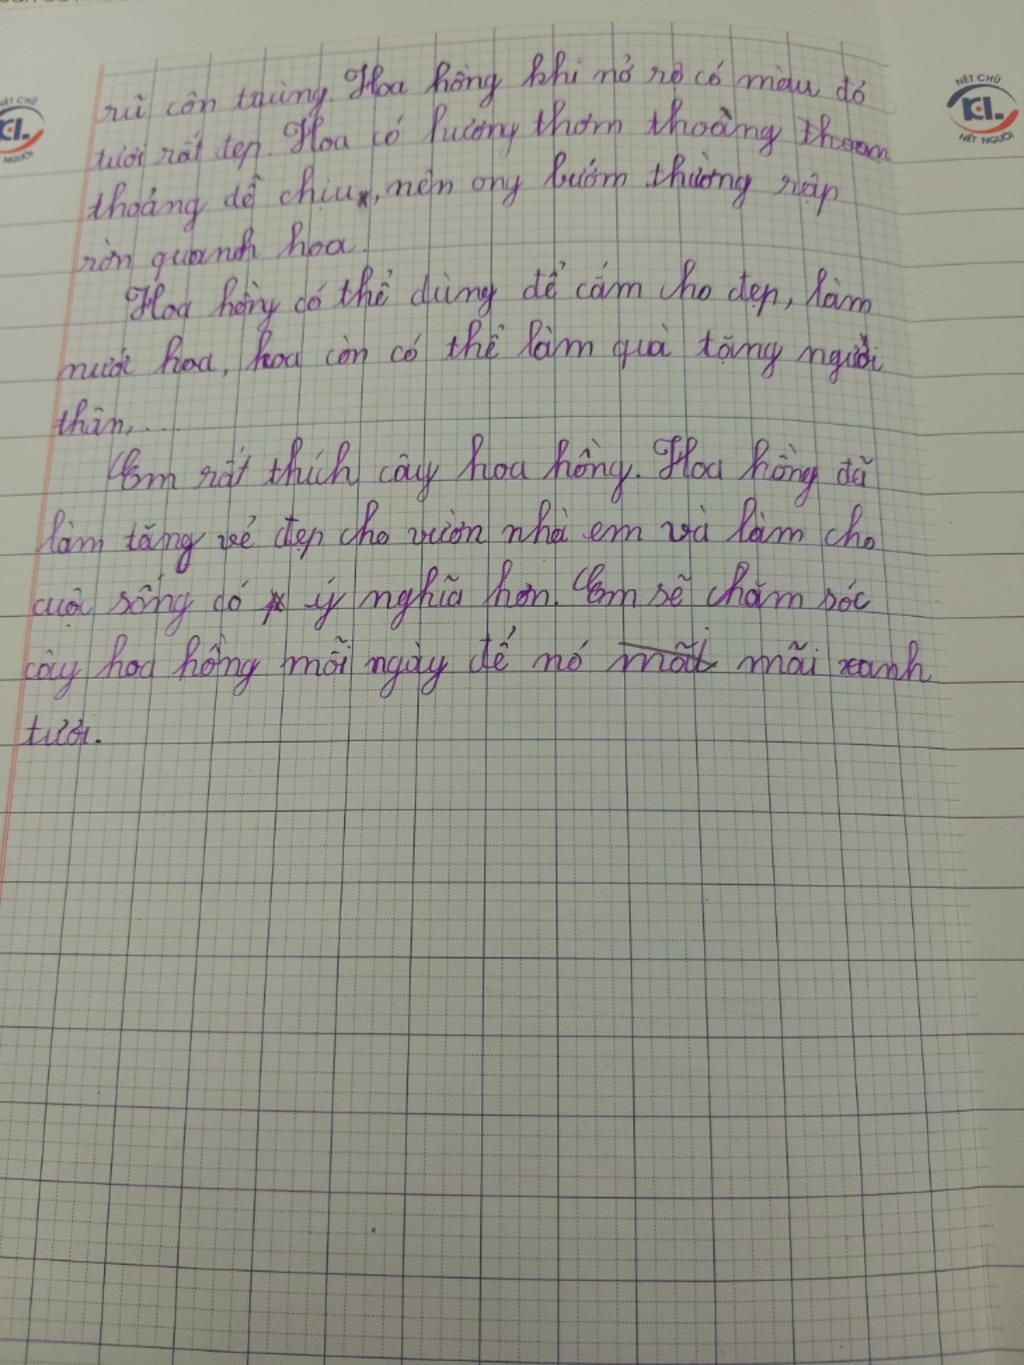 rũ côn trùng. Hoa hồng khi nở rộ có màu đỏ
tươi rất đẹp. Hoa có hương thơm thoang thoảng
thoảng dễ chịu, nên ong bướm thường rập
rờn quanh hoa.
Hoa hồng có thể dùng để cắm cho đẹp, làm
nước hoa, hoa còn có thể làm quà tặng người
thân,...
Em rất thích cây hoa hồng. Hoa hồng đã
làm tăng vẻ đẹp cho vườn nhà em và làm cho
cuộc sống có ý nghĩa hơn. Em sẽ chăm sóc
cây hoa hồng mỗi ngày để nó mãi xanh
tươi.
NÉT CHỮ
KL.
NÉT NGƯỜI